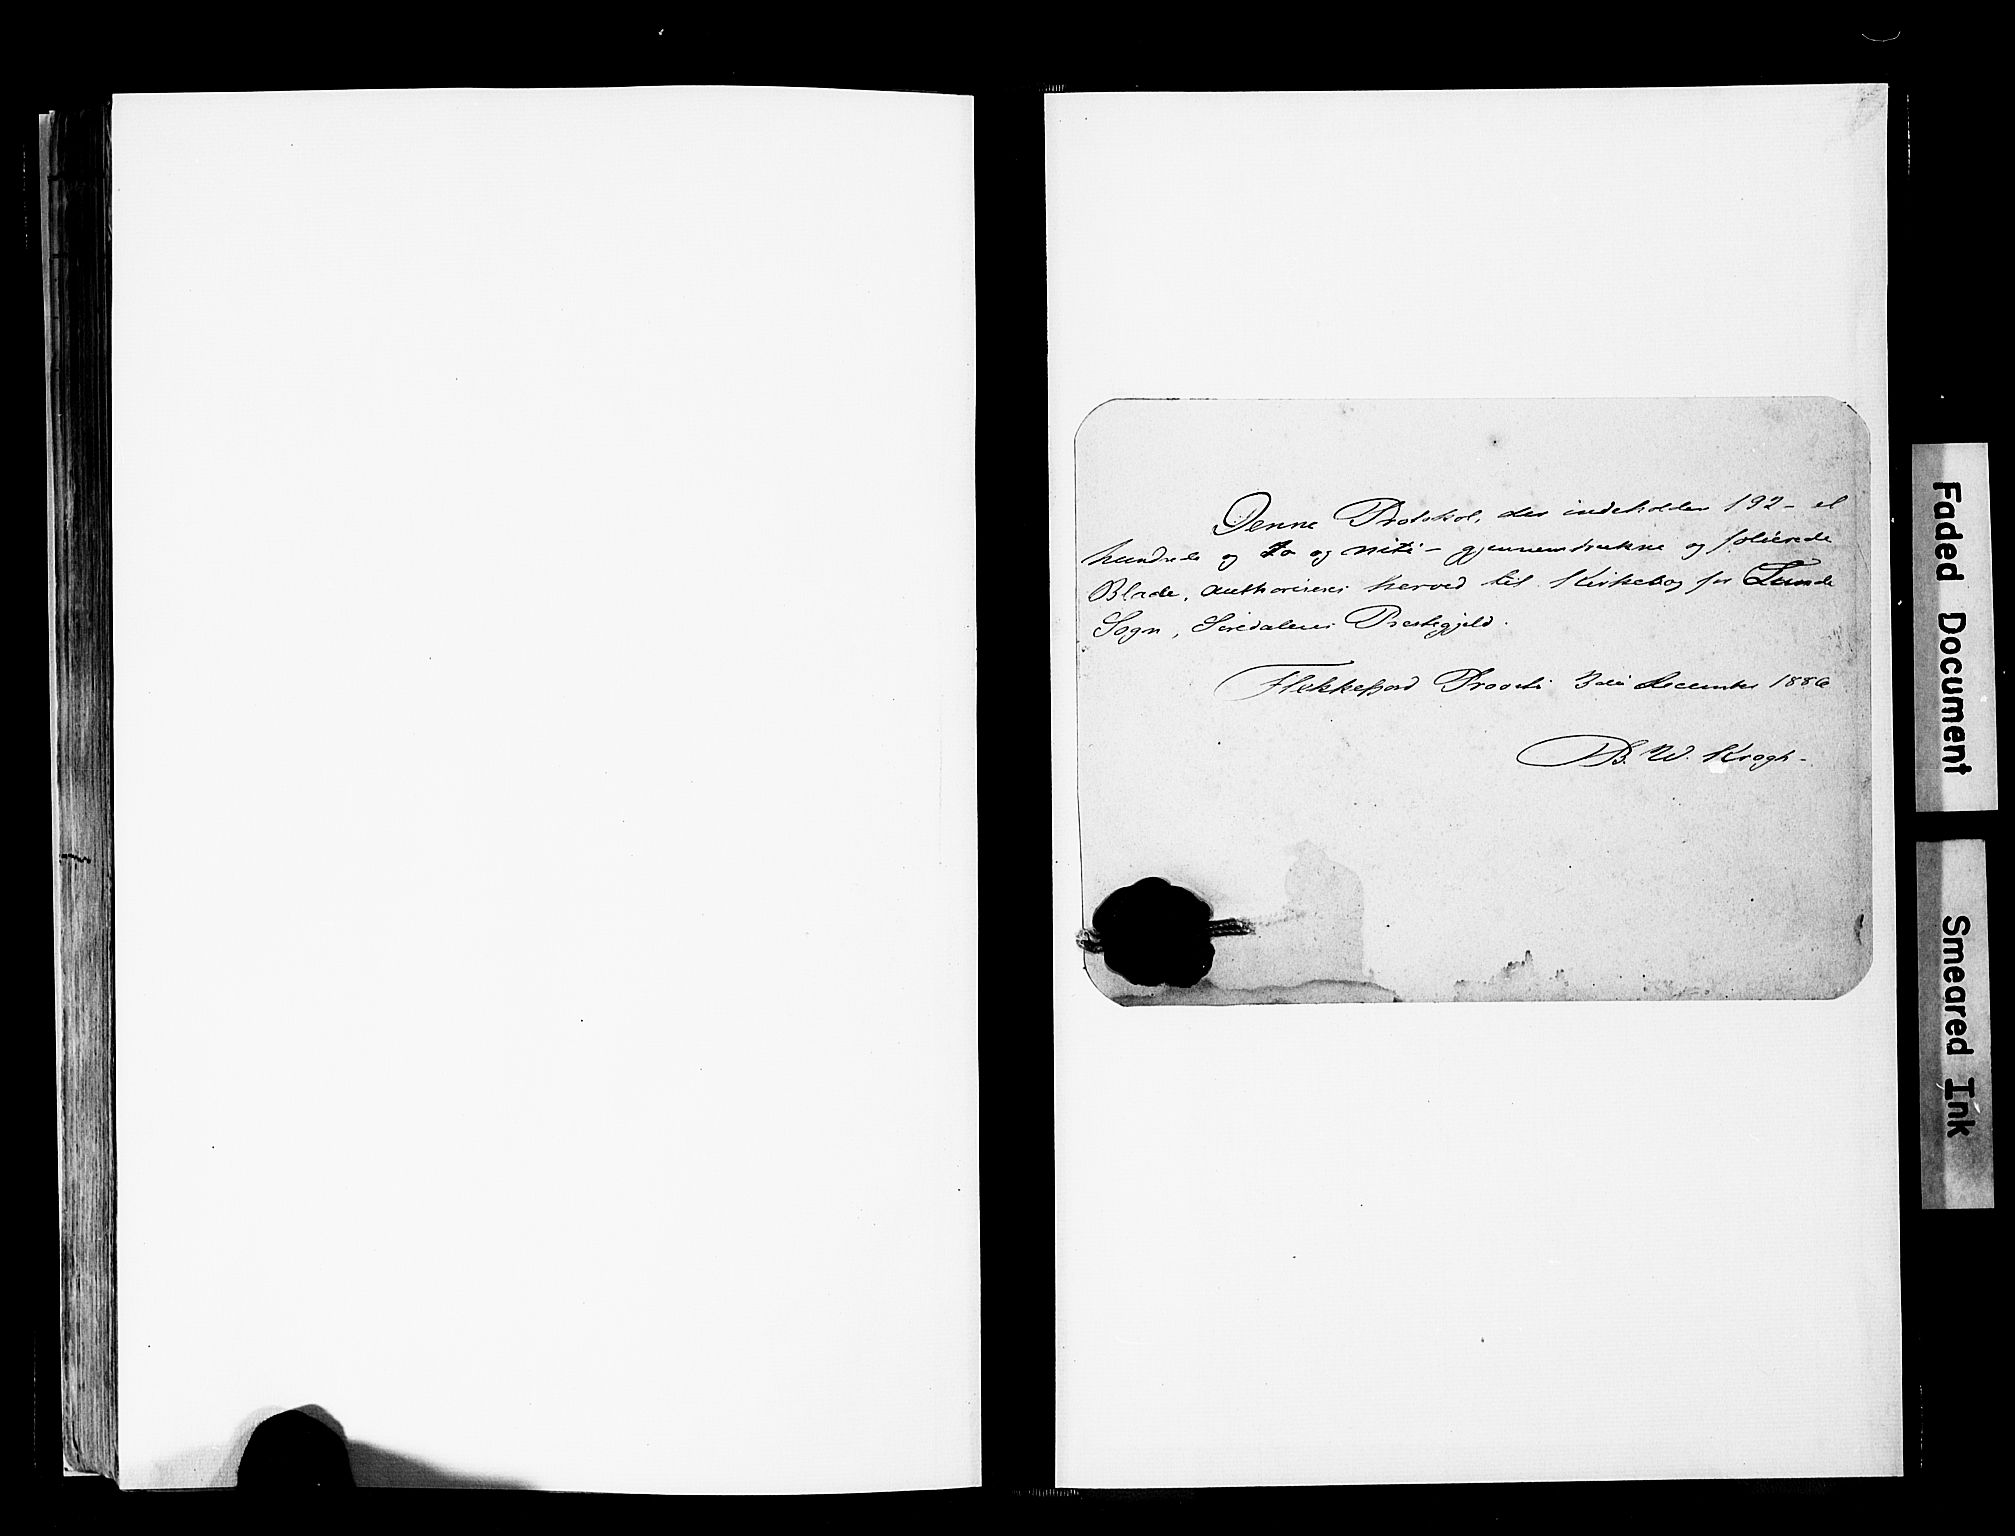 Denne Protokol, der indeholder 192 - et
hundrede og to og niti - gjennemtrukne og folierede
Blade, authoriseres herved til Kirkebog for Lunde
Sogn, Siredalens Prestegjeld.
Flekkefjord Provsti 3die December 1886
B. W. Krogh -
Faded Document
Smeared Ink